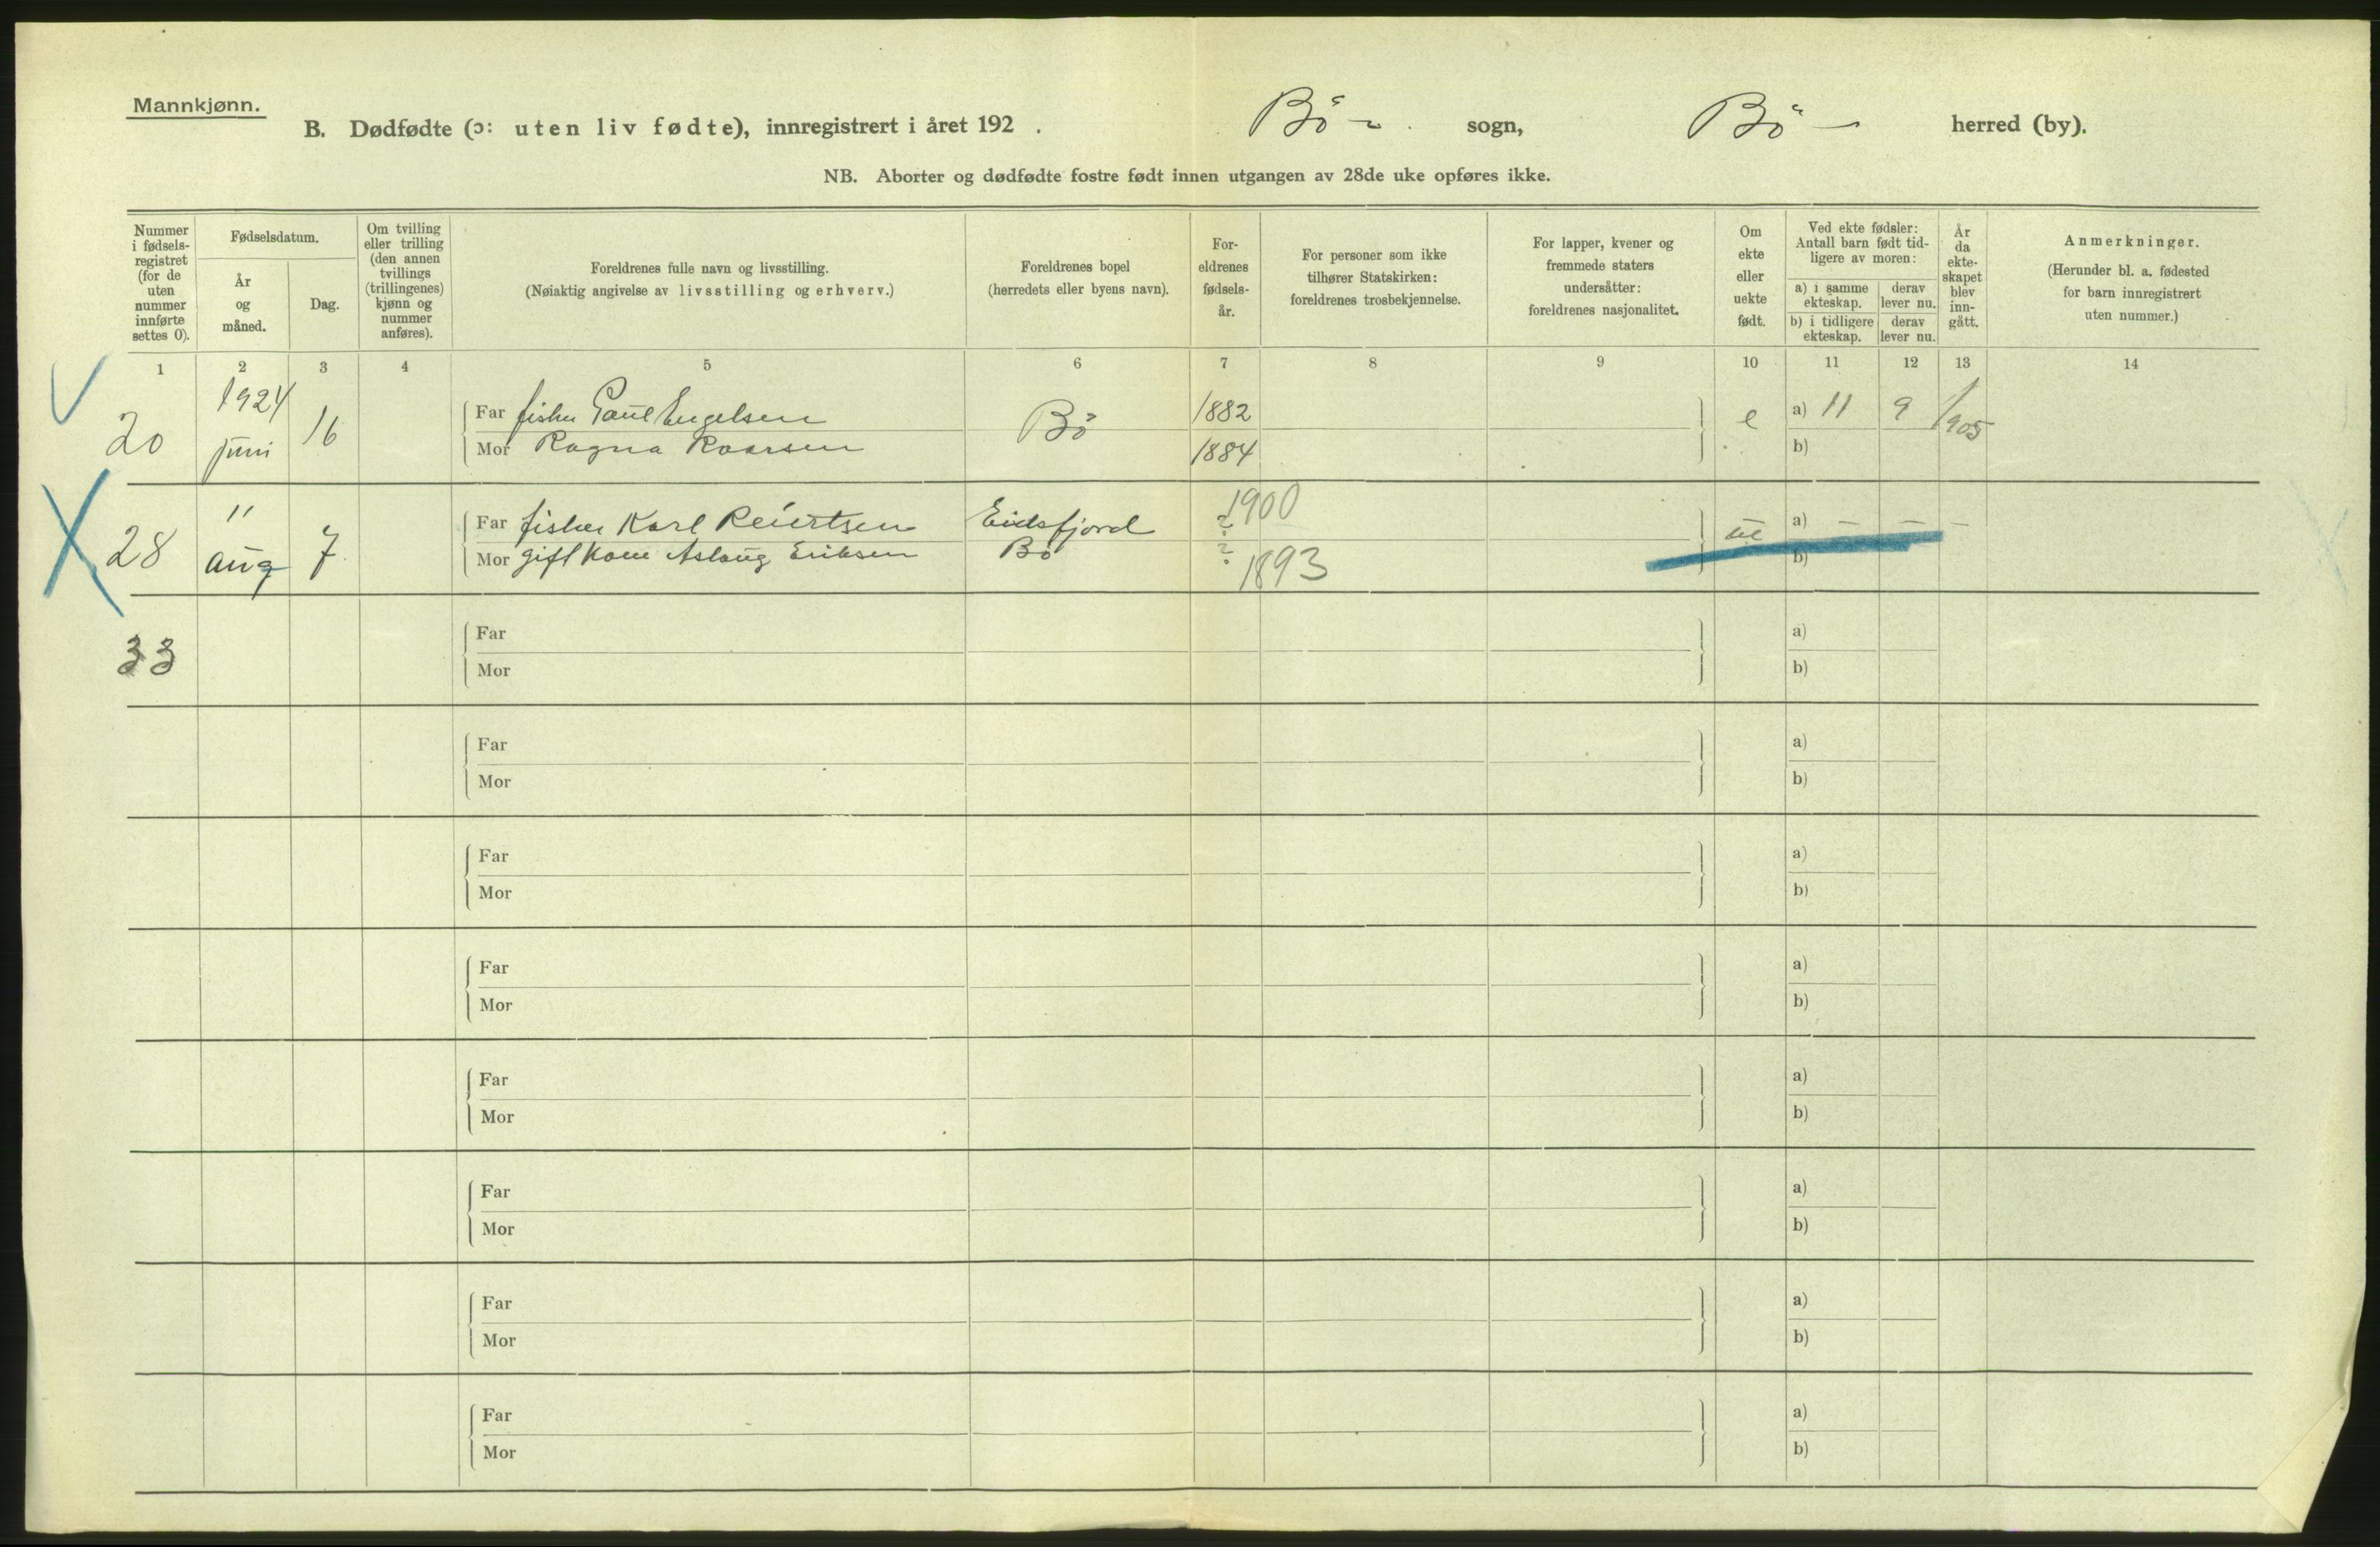 Mannkjønn.
B. Dødfødte (ɔ: uten liv fødte), innregistrert i året 192 . Bö sogn, Bö herred (by).
NB. Aborter og dødfødte fostre født innen utgangen av 28de uke opføres ikke.
Nummer i fødsels- registret (for de uten nummer innførte settes 0).
Fødselsdatum.
År og måned.
Dag.
Om tvilling eller trilling (den annen tvillings (trillingenes) kjønn og nummer anføres).
Foreldrenes fulle navn og livsstilling.
(Nøiaktig angivelse av livsstilling og erhverv.)
Foreldrenes bopel
(herredets eller byens navn).
For- eldrenes fødsels- år.
For personer som ikke
tilhører Statskirken:
foreldrenes trosbekjennelse.
For lapper, kvener og
fremmede staters
undersåtter:
foreldrenes nasjonalitet.
Om ekte eller uekte født.
Ved ekte fødsler:
Antall barn født tid-
ligere av moren:
a) i samme ekteskap.
derav lever nu.
b) i tidligere ekteskap.
derav lever nu.
År da ekte- skapet blev inn- gått.
Anmerkninger.
(Herunder bl. a. fødested
for barn innregistrert
uten nummer.)
1 2 3 4 5 6 7 8 9 10 11 12 13 14
20 1924 juni 16 Far fisker Paul Engelsen Bö 1882 e a) 11 9 1905
Mor Ragna Roarsen 1884 b)
28 " aug 7 Far fisker Karl Reiertsen Eidsfjord ? 1900 ue a) – – –
Mor gift kone Aslaug Eriksen Bö ? 1893 b)
33 Far a)
Mor b)
Far a)
Mor b)
Far a)
Mor b)
Far a)
Mor b)
Far a)
Mor b)
Far a)
Mor b)
Far a)
Mor b)
Far a)
Mor b)